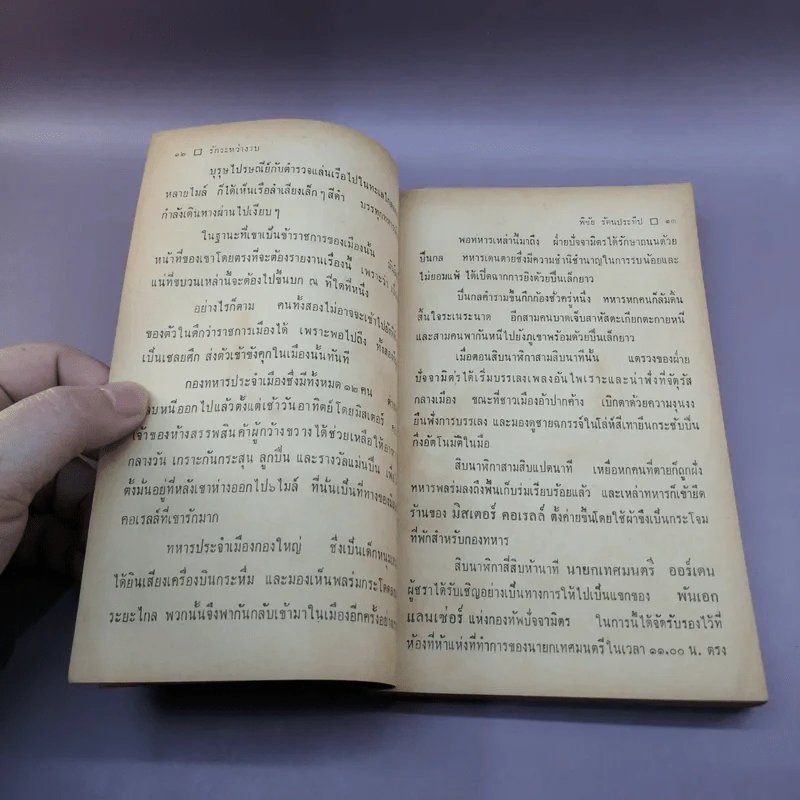 ๑๒ □ รักระหว่างาน
บุรุษไปรษณีย์กับตำรวจแล่นเรือไปในทะเล
หลายไมล์ ก็ได้เห็นเรือลำเลียงเล็กๆ สีดำ บรรทุกทหาร
กำลังเดินทางผ่านไปเงียบๆ
ในฐานะที่เขาเป็นข้าราชการของเมืองนั้น
หน้าที่ของเขาโดยตรงที่จะต้องรายงานเรื่องนี้ เพราะว่า
แน่ที่ขบวนเหล่านี้จะต้องไปขึ้นบก ณ ที่ใดที่หนึ่ง
อย่างไรก็ตาม คนทั้งสองไม่อาจจะเข้าไป
ของตัวในตึกว่าราชการเมืองได้ เพราะพอไปถึง
เป็นเชลยศึก ส่งตัวเข้าขังคุกในเมืองนั้นทันที
กองทหารประจำเมืองซึ่งมีทั้งหมด ๑๒ คน
หนีออกไปแล้วตั้งแต่เช้าวันอาทิตย์ โดยมิสเตอร์
เจ้าของห้างสรรพสินค้าผู้กว้างขวาง ได้ช่วยเหลือให้
กลางวัน เกราะกันกระสุน ลูกปืน และรางวัลแม่นปืน
ตั้งมั่นอยู่ที่หลังเขาห่างออกไป ๖ ไมล์ ที่นั่นเป็นที่ทาง
คอเรลล์ที่เขารักมาก
ทหารประจำเมืองกองใหญ่ ซึ่งเป็นเด็กหนุ่ม
ได้ยินเสียงเครื่องบินกระหึ่ม และมองเห็นพลร่มกระโดด
ระยะไกล พวกนั้นจึงพากันกลับเข้ามาในเมืองอีกครั้ง
พิชัย รัตนประทีป □ ๑๓
พอทหารเหล่านี้มาถึง ฝ่ายปัจจามิตรได้รักษาถนนด้วย
ปืนกล ทหารเดนตายซึ่งมีความชำนิชำนาญในการรบน้อยและ
ไม่ยอมแพ้ ได้เปิดฉากการยิงด้วยปืนเล็กยาว
ปืนกลคำรามขึ้นกึกก้องชั่วครู่หนึ่ง ทหารหกคนก็ล้มดิ้น
สิ้นใจระเนระนาด อีกสามคนบาดเจ็บสาหัสตะเกียกตะกายหนี
และสามคนพากันหนีไปยังภูเขาพร้อมด้วยปืนเล็กยาว
เมื่อตอนสิบนาฬิกาสามสิบนาทีนั้น แตรวงของฝ่าย
ปัจจามิตรได้เริ่มบรรเลงเพลงอันไพเราะและน่าฟังที่จัตุรัส
กลางเมือง ขณะที่ชาวเมืองอ้าปากค้าง เบิกตาด้วยความงุนงง
ยืนฟังการบรรเลง และมองดูชายฉกรรจ์ในโล่ห์สีเทายืนกระชับปืน
กึ่งอัตโนมัติในมือ
สิบนาฬิกาสามสิบแปดนาที เหยื่อหกคนที่ตายก็ถูกฝัง
ทหารพลร่มลงถึงพื้นเก็บร่มเรียบร้อยแล้ว และเหล่าทหารก็เข้ายึด
ร้านของ มิสเตอร์ คอเรลล์ ตั้งค่ายขึ้นโดยใช้ผ้าขึงเป็นกระโจม
ที่พักสำหรับกองทหาร
สิบนาฬิกาสี่สิบห้านาที นายกเทศมนตรี ออร์เดน
ผู้ชราได้รับเชิญอย่างเป็นทางการให้ไปเป็นแขกของ พันเอก
แลนเซ่อร์ แห่งกองทัพปัจจามิตร ในการนี้ได้จัดรับรองไว้ที่
ห้องที่ห้าแห่งที่ทำการของนายกเทศมนตรีในเวลา ๑๑.๐๐ น. ตรง